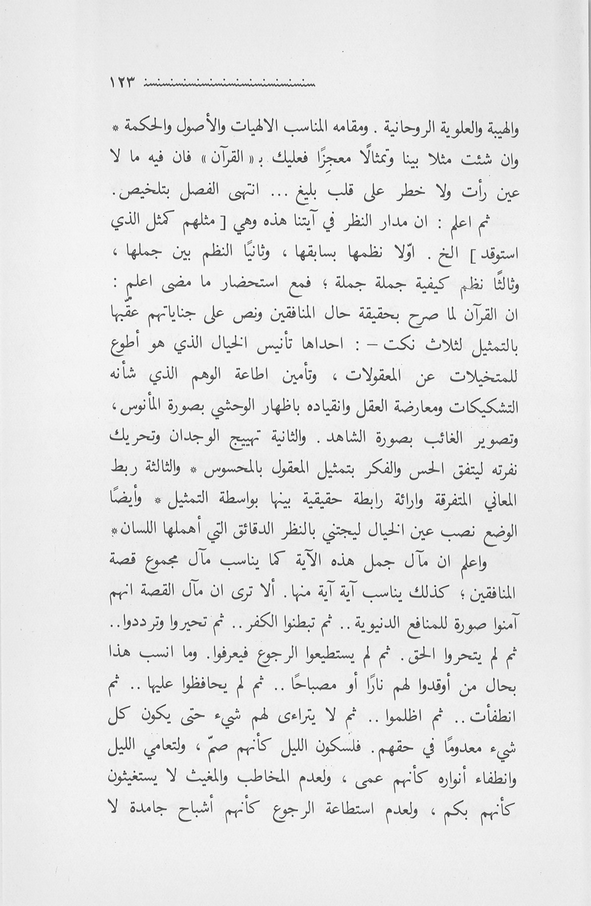 ١٢٣
والهيبة والعلوية الروحانية . ومقامه المناسب الالهيات والأصول والحكمة *
وان شئت مثلا بينا وتمثالًا معجِزًا فعليك بـ « القرآن » فان فيه ما لا
عين رأت ولا خطر على قلب بليغ ... انتهى الفصل بتلخيص.
ثم اعلم : ان مدار النظر في آيتنا هذه وهي [ مثلهم كمثل الذي
استوقد ] الخ . اوّلا نظمها بسابقها ، وثانيًا النظم بين جملها ،
وثالثًا نظم كيفية جملة جملة ؛ فمع استحضار ما مضى اعلم :
ان القرآن لما صرح بحقيقة حال المنافقين ونص على جناياتهم عقّبها
بالتمثيل لثلاث نكت – : احداها تأنيس الخيال الذي هو أطوع
للمتخيلات عن المعقولات ، وتأمين اطاعة الوهم الذي شأنه
التشكيكات ومعارضة العقل وانقياده باظهار الوحشي بصورة المأنوس،
وتصوير الغائب بصورة الشاهد . والثانية تهييج الوجدان وتحريك
نفرته ليتفق الحس والفكر بتمثيل المعقول بالمحسوس * والثالثة ربط
المعاني المتفرقة وارائة رابطة حقيقية بينها بواسطة التمثيل * وأيضًا
الوضع نصب عين الخيال ليجتني بالنظر الدقائق التي أهملها اللسان*
واعلم ان مآل جمل هذه الآية كما يناسب مآل مجموع قصة
المنافقين ؛ كذلك يناسب آية آية منها. ألا ترى ان مآل القصة انهم
آمنوا صورة للمنافع الدنيوية .. ثم تبطنوا الكفر .. ثم تحيروا وترددوا..
ثم لم يتحروا الحق. ثم لم يستطيعوا الرجوع فيعرفوا. وما انسب هذا
بحال من أوقدوا لهم نارًا أو مصباحًا .. ثم لم يحافظوا عليها .. ثم
انطفأت .. ثم اظلموا .. ثم لا يتراءى لهم شيء حتى يكون كل
شيء معدومًا في حقهم. فلسكون الليل كأنهم صمّ ، ولتعامي الليل
وانطفاء أنواره كأنهم عمى ، ولعدم المخاطب والمغيث لا يستغيثون
كأنهم بكم ، ولعدم استطاعة الرجوع كأنهم أشباح جامدة لا